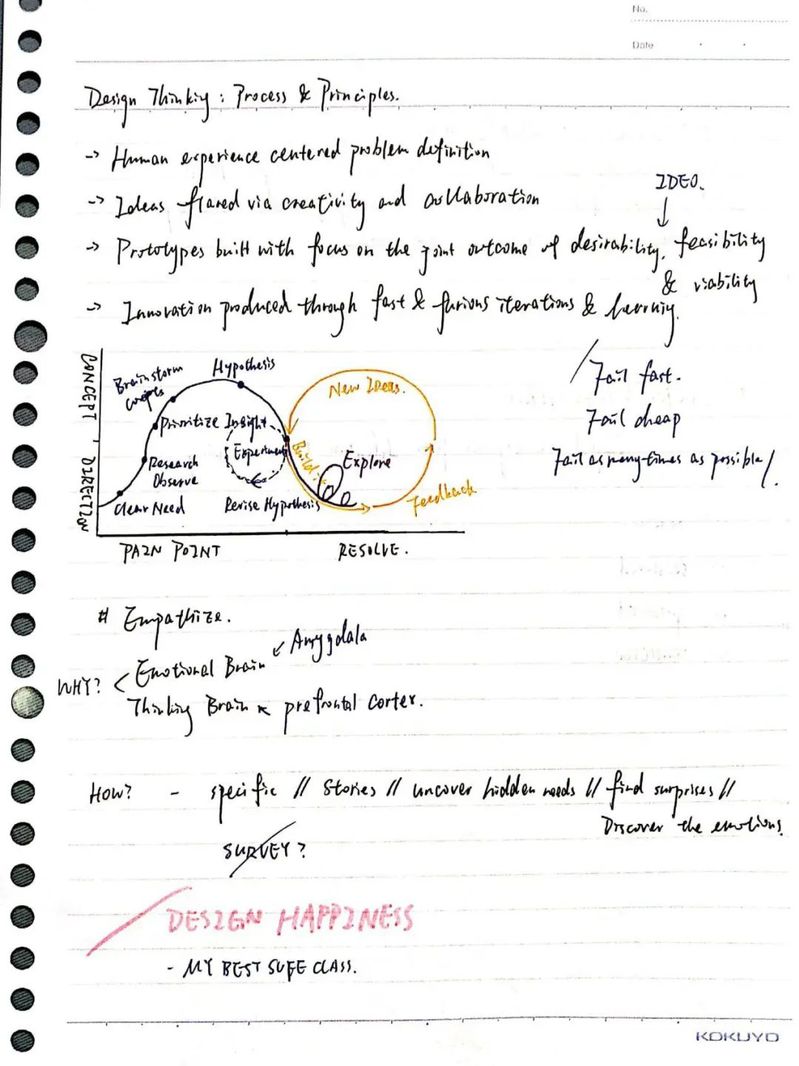 No.
Date
Design Thinking : Process & Principles.
-> Human experience centered problem definition
IDEO.
-> Ideas flared via creativity and collaboration
-> Prototypes built with focus on the joint outcome of desirability, feasibility
& viability
-> Innovation produced through fast & furious iterations & learning.
Fail fast.
Fail cheap
Fail as many times as possible
CONCEPT / DIRECTION
Hypothesis
Brainstorm
New Ideas.
Prioritize Insight
Experiment
Build it
Research
Observe
Explore
Clear Need
Revise Hypothesis
Feedback
PAIN POINT
RESOLVE.
# Empathize.
Amygdala
WHY? < Emotional Brain
Thinking Brain prefrontal Corter.
HOW? - specific // stories // uncover hidden needs // find surprises //
Discover the emotions.
SURVEY ?
DESIGN HAPPINESS
- MY BEST SUFE CLASS.
KOKUYO